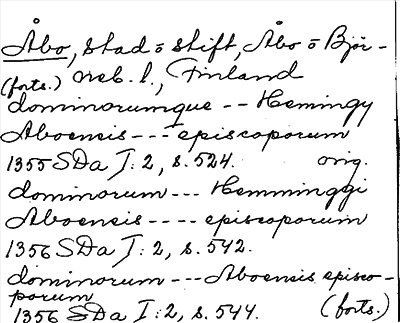 Åbo, stad o stift, Åbo o Björ-
(forts.) neb. l., Finland
dominorumque -- Hemingy
Aboensis --- episcoporum
1355 SDa I: 2, s. 524. orig.
dominorum --- Hemminggi
Aboensis ---- episcoporum
1356 SDa I: 2, s. 542.
dominorum --- Aboensis episco-
porum
1356 SDa I: 2, s. 544. (forts.)